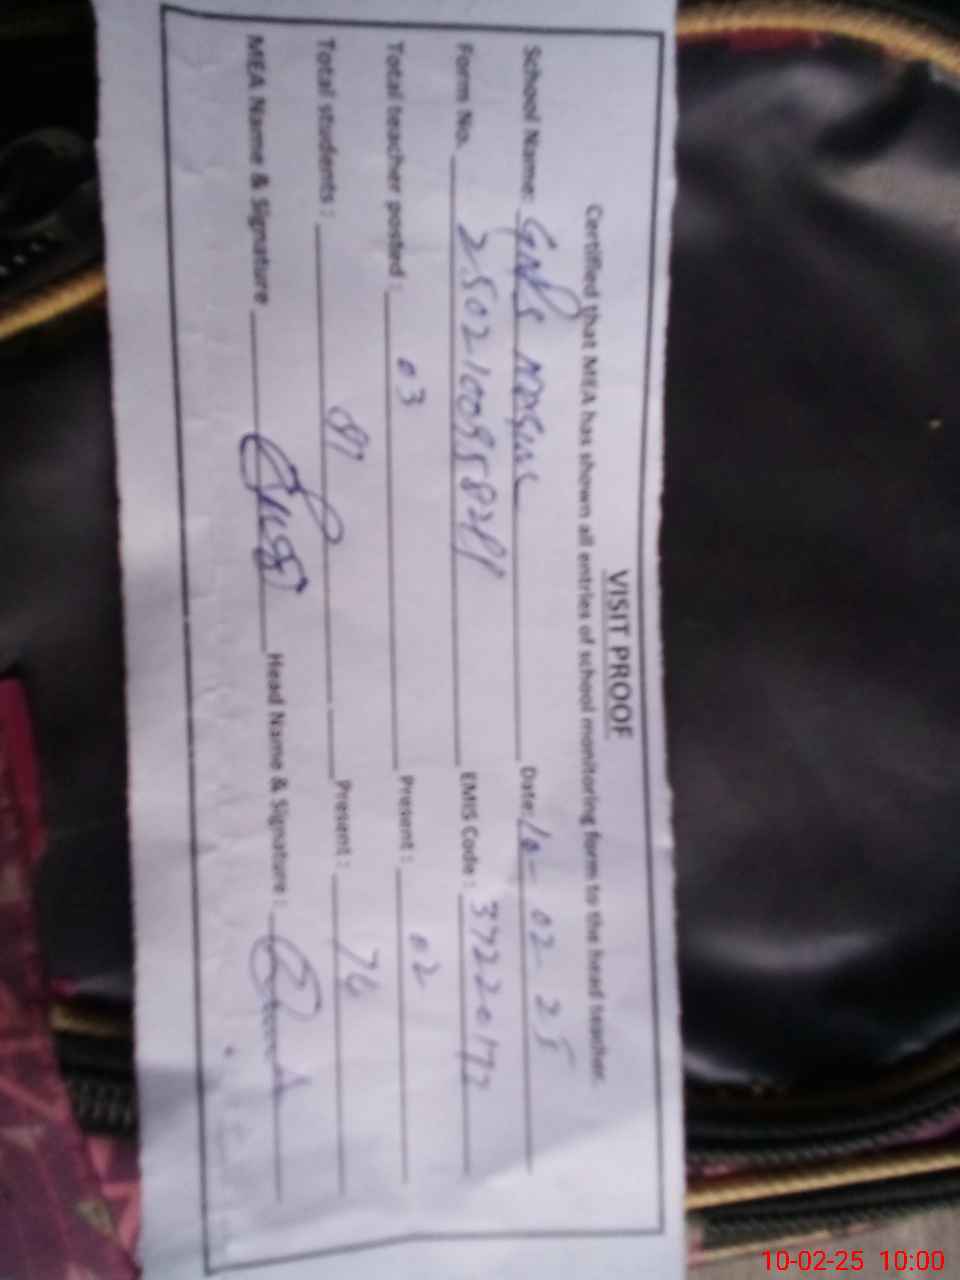 VISIT PROOF
Certified that MEA has shown all entries of school monitoring form to the head teacher.
School Name: GNPS Date: 10-02 25
Form No. EMIS Code: 37220172
Total teacher posted: 03 Present: 02
Total students: 91 Present: 76
MEA Name & Signature Head Name & Signature:
10-02-25 10:00